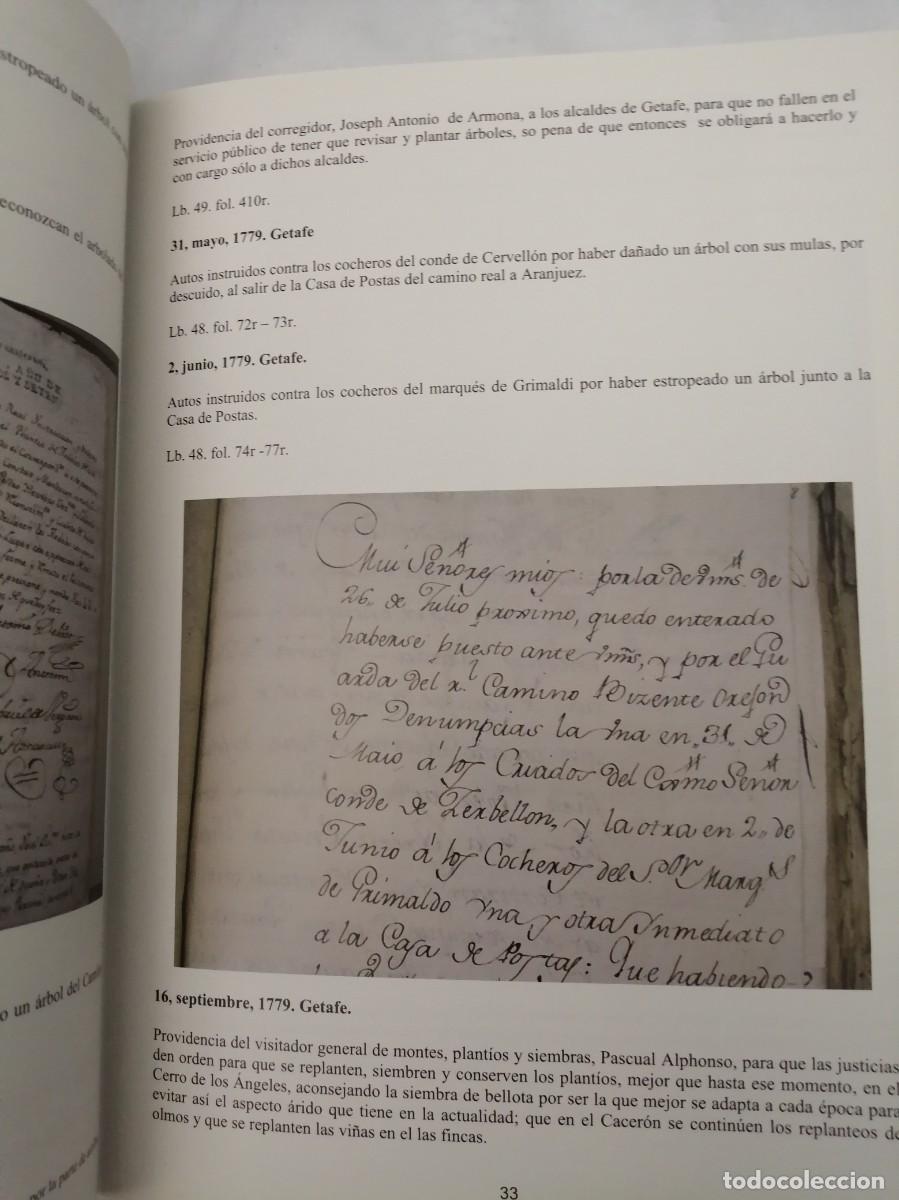 stropeado un árbol con
econozcan el arbolado
o un árbol del Cam
por la parte de
Providencia del corregidor, Joseph Antonio de Armona, a los alcaldes de Getafe, para que no fallen en el
servicio público de tener que revisar y plantar árboles, so pena de que entonces se obligará a hacerlo y
con cargo sólo a dichos alcaldes.
Lb. 49. fol. 410r.
31, mayo, 1779. Getafe
Autos instruidos contra los cocheros del conde de Cervellón por haber dañado un árbol con sus mulas, por
descuido, al salir de la Casa de Postas del camino real a Aranjuez.
Lb. 48. fol. 72r – 73r.
2, junio, 1779. Getafe.
Autos instruidos contra los cocheros del marqués de Grimaldi por haber estropeado un árbol junto a la
Casa de Postas.
Lb. 48. fol. 74r -77r.
Mui Señores mios: por la de Vms. de
26. de Julio proximo, quedo enterado
haberse puesto ante Vms, y por el Gu
arda del rl. Camino Vizente Crejon
dos Denumpcias la Vna en 31. de
Maio á los Criados del Exmo Señor
conde de Zerbellon, y la otra en 2. de
Junio á los Cocheros del S.or Marqs
de Grimaldo Vna y otra Ynmediato
a la Casa de Postas: Que habiendo
16, septiembre, 1779. Getafe.
Providencia del visitador general de montes, plantíos y siembras, Pascual Alphonso, para que las justicias
den orden para que se replanten, siembren y conserven los plantíos, mejor que hasta ese momento, en el
Cerro de los Ángeles, aconsejando la siembra de bellota por ser la que mejor se adapta a cada época para
evitar así el aspecto árido que tiene en la actualidad; que en el Cacerón se continúen los replanteos de
olmos y que se replanten las viñas en el las fincas.
33
todocoleccion